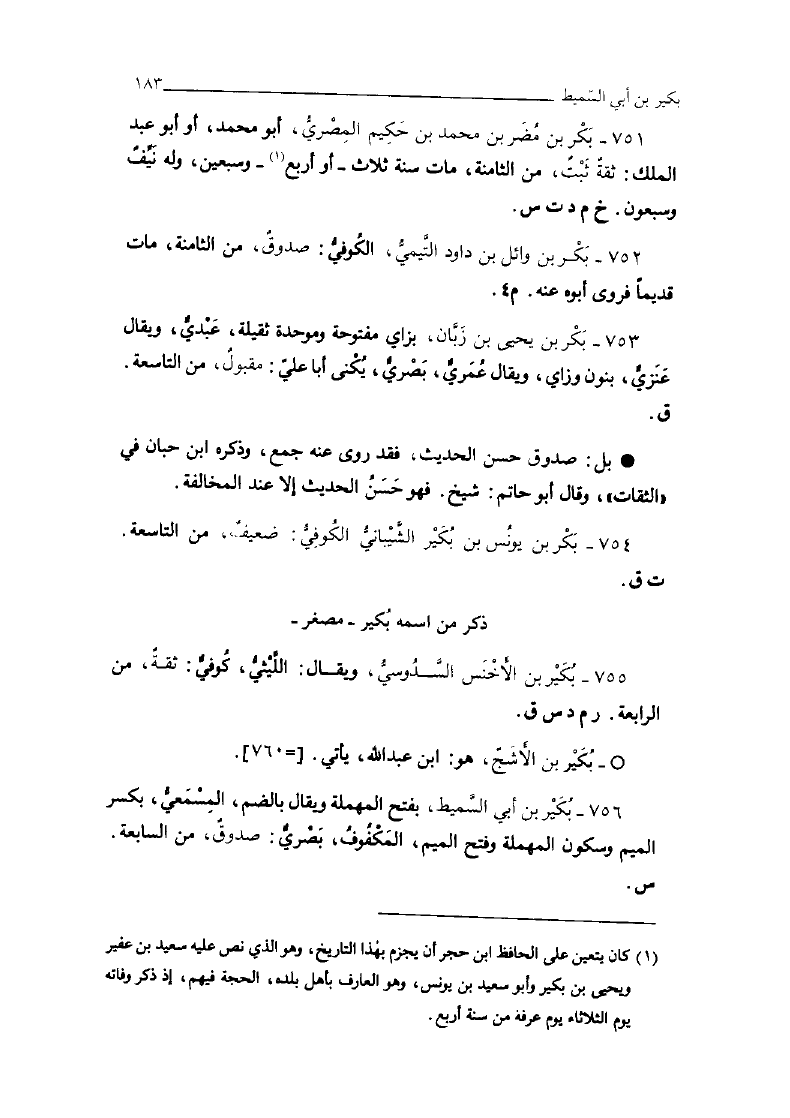 بكير بن أبي السّميط ١٨٣
٧٥١ - بَكْر بن مُضَر بن محمد بن حَكِيم المِصْريُّ، أبو محمد، أو أبو عبد
الملك: ثقةٌ ثَبْتٌ، من الثامنة، مات سنة ثلاث - أو أربع(١) - وسبعين، وله نَيِّفٌ
وسبعون. خ م د ت س.
٧٥٢ - بَكْر بن وائل بن داود التَّيميُّ، الكُوفيُّ: صدوقٌ، من الثامنة، مات
قديماً فروى أبوه عنه. م٤.
٧٥٣ - بَكْر بن يحيى بن زَبَّان، بزاي مفتوحة وموحدة ثقيلة، عَبْديٌّ، ويقال
عَنَزيٌّ، بنون وزاي، ويقال عُمَريٌّ، بَصْريٌّ، يُكْنى أبا عليّ: مقبولٌ، من التاسعة.
ق.
● بل: صدوق حسن الحديث، فقد روى عنه جمع، وذكره ابن حبان في
«الثقات»، وقال أبو حاتم: شيخ. فهو حَسَنُ الحديث إلا عند المخالفة.
٧٥٤ - بَكْر بن يونُس بن بُكَيْر الشَّيْبانيُّ الكُوفيُّ: ضعيفٌ، من التاسعة.
ت ق.
ذكر من اسمه بُكير - مصغر -
٧٥٥ - بُكَيْر بن الأَخْنَس السَّدُوسيُّ، ويقال: اللَّيْثيُّ، كُوفيٌّ: ثقةٌ، من
الرابعة. ر م د س ق.
○ - بُكَيْر بن الأَشجّ، هو: ابن عبدالله، يأتي. [=٧٦٠].
٧٥٦ - بُكَيْر بن أبي السَّميط، بفتح المهملة ويقال بالضم، المِسْمَعيُّ، بكسر
الميم وسكون المهملة وفتح الميم، المَكْفُوفُ، بَصْريٌّ: صدوقٌ، من السابعة.
س.
(١) كان يتعين على الحافظ ابن حجر أن يجزم بهٰذا التاريخ، وهو الذي نص عليه سعيد بن عفير
ويحيى بن بكير وأبو سعيد بن يونس، وهو العارف بأهل بلده، الحجة فيهم، إذ ذكر وفاته
يوم الثلاثاء يوم عرفة من سنة أربع.